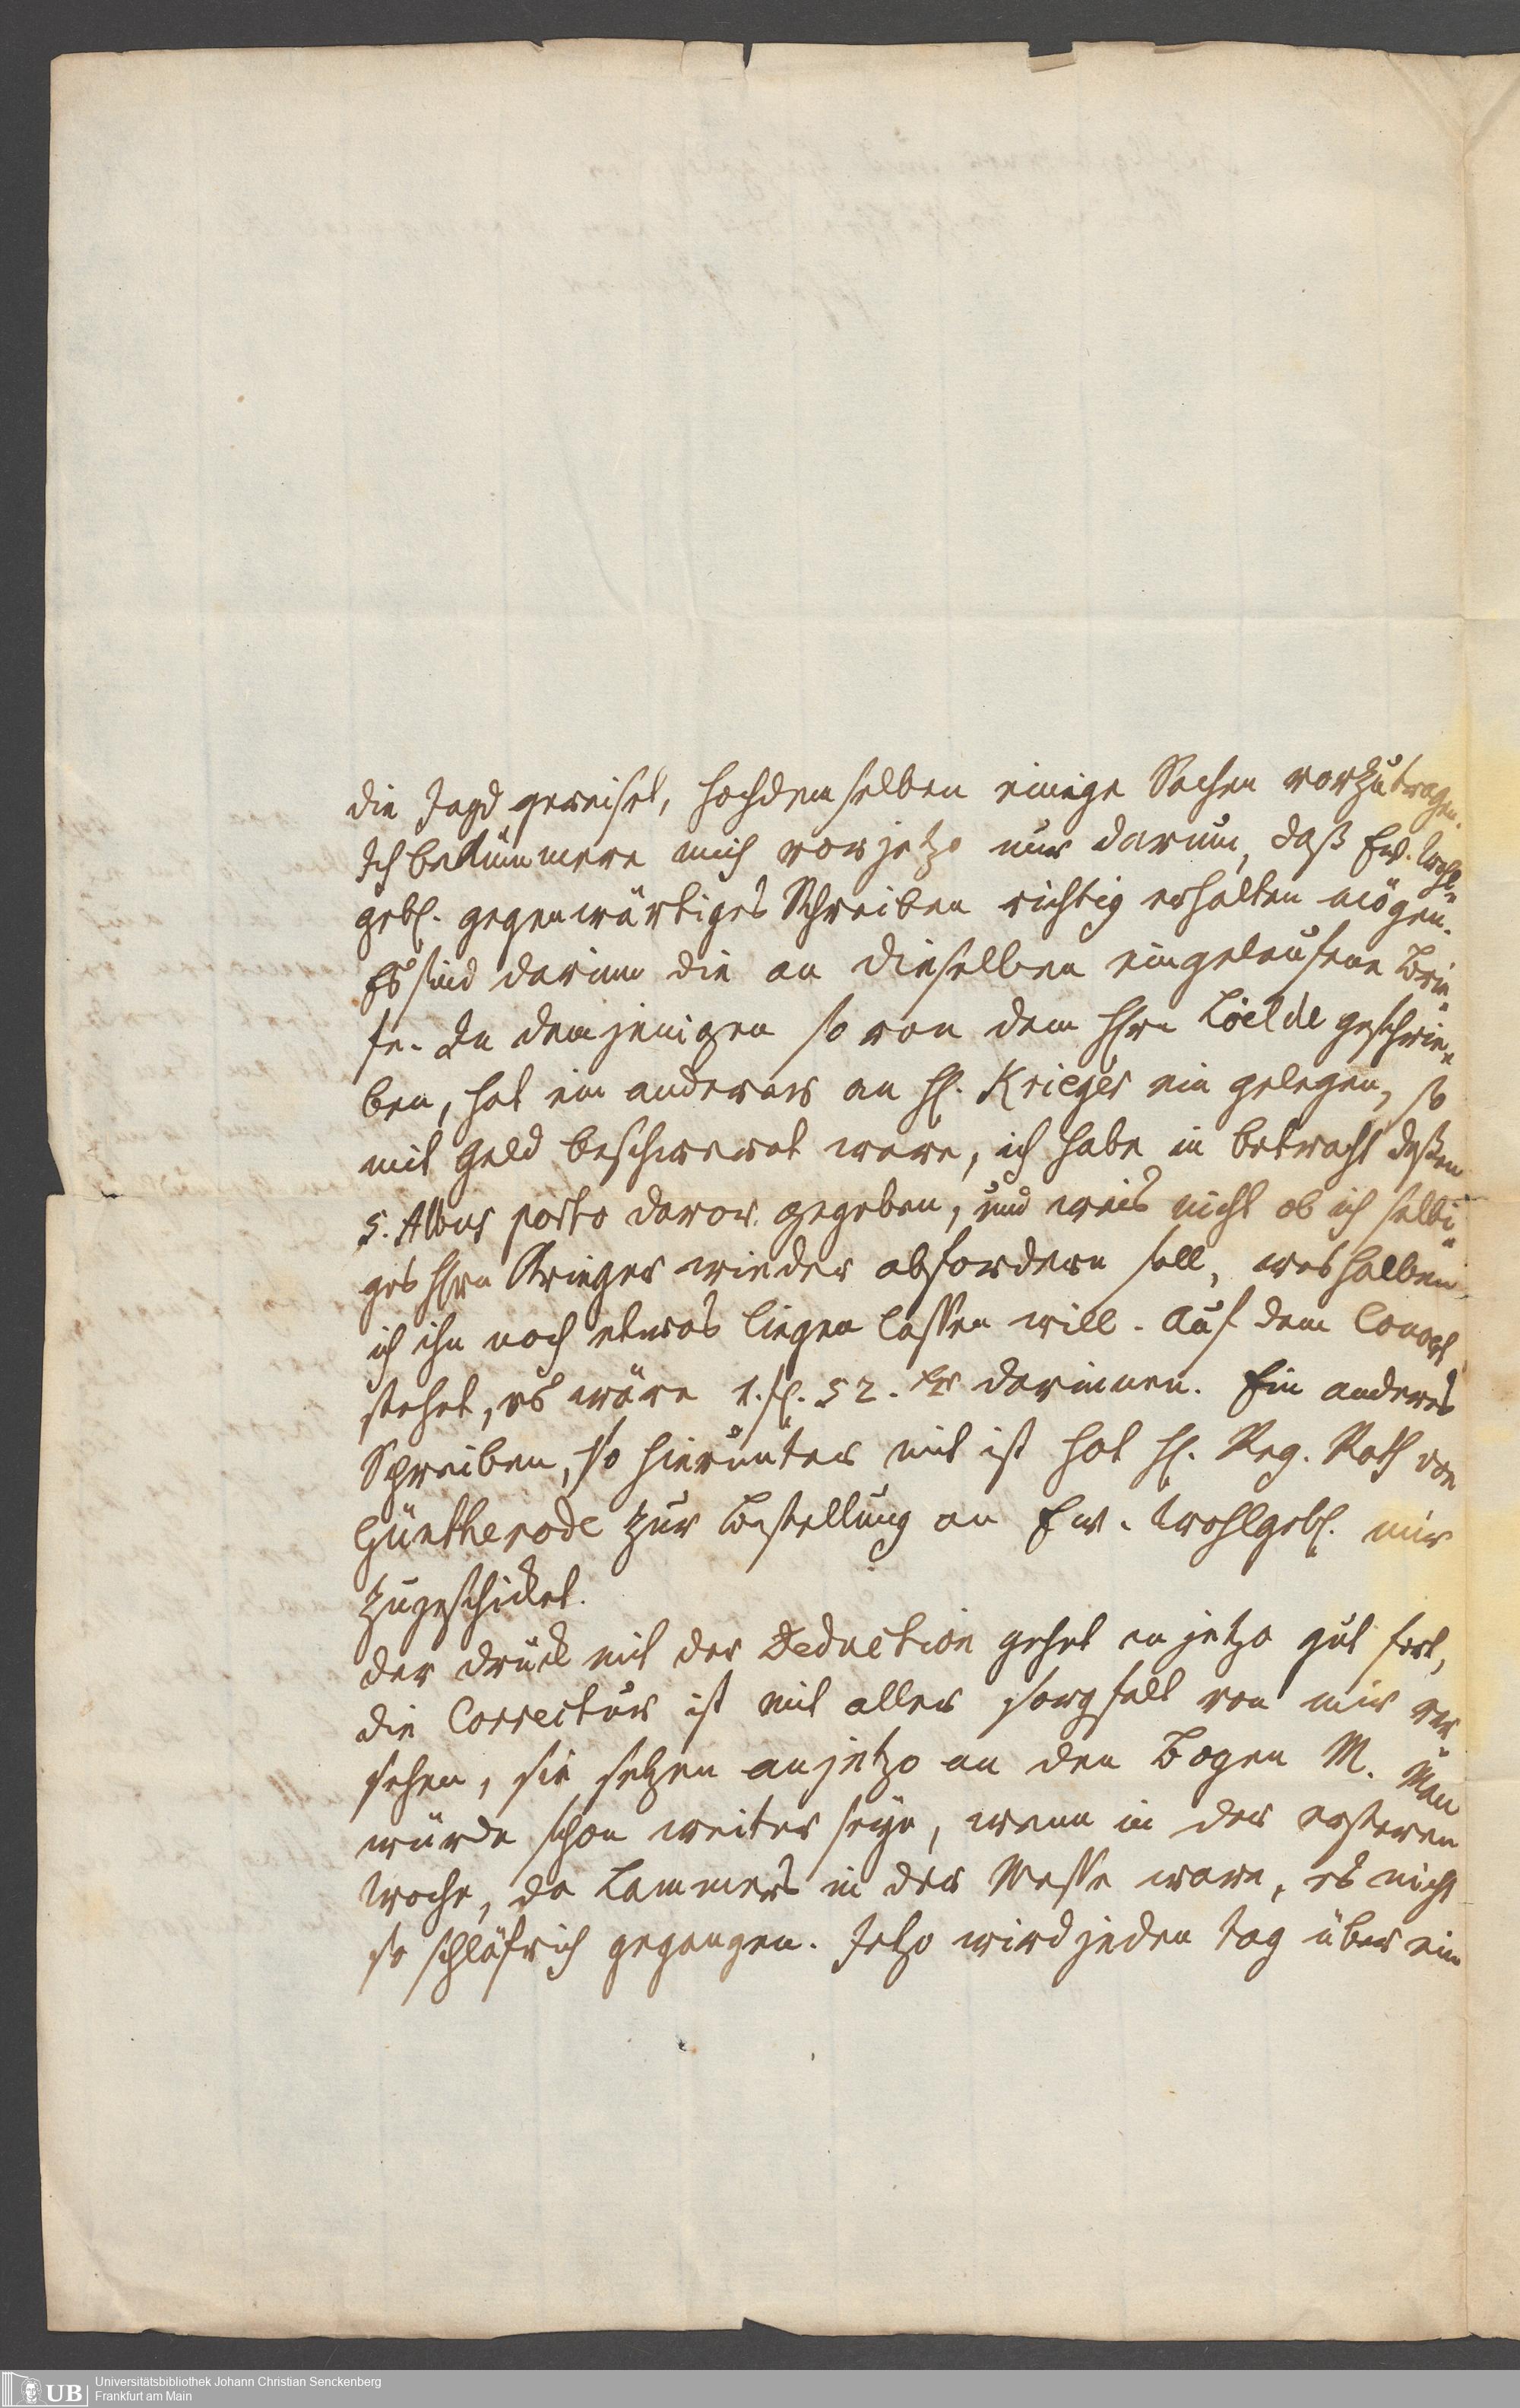 die Jagd gereiset, hochdemselben einige Sachen vorzutragen.
Ich bekümmere mich vor jetzo nur darum, daß Ew. Wohl-
gebl. gegenwärtiges Schreiben richtig erhalten mögen.
Es sind darinn die an dieselben eingelaufene Brie-
fe. In demjenigen so von dem Hhrn Löelde geschrie-
ben, hat ein anderer an Hl. Krieger ein gelegen, so
mit Geld beschweret ware, ich habe in betracht deßen
5. Albus porto davor gegeben, und weis nicht ob ich selbi-
ges Hhrn Krieger wieder abfordern soll, weshalben
ich ihn noch etwas liegen lassen will. Auf dem Couvert
stehet, es wäre 1. fl. 52. xr darinnen. Ein anderes
Schreiben, so hierunter mit ist hat Hl. Reg. Rath von
Güntherode zur Bestellung an Ew. Wohlgebl. mir
zugeschicket.
der druck mit der Deduction gehet anjetzo gut fort,
die Correctur ist mit aller sorgfalt von mir ver
sehen, sie setzen anjetzo an den Bogen M. Man
würde schon weiter seyn, wenn in der ersteren
Woche, da Lammers in der Messe ware, es nicht
so schläfrich gegangen. Jetzo wird jeden tag über ein
Universitätsbibliothek Johann Christian Senckenberg
Frankfurt am Main
UB